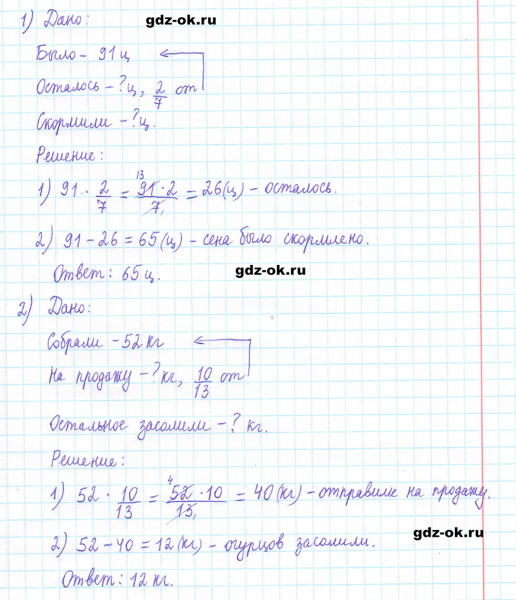 1) Дано:
gdz-ok.ru
Было - 91 ц
Осталось - ? ц, 2/7 от
Скормили - ? ц.
Решение:
1) 91 · 2/7 = 91 · 2/7 = 26 (ц) - осталось.
13
1
2) 91 - 26 = 65 (ц) - сена было скормлено.
Ответ: 65 ц.
gdz-ok.ru
2) Дано:
Собрали - 52 кг
На продажу - ? кг, 10/13 от
Остальное засолили - ? кг.
Решение:
1) 52 · 10/13 = 52 · 10/13 = 40 (кг) - отправили на продажу.
4
1
2) 52 - 40 = 12 (кг) - огурцов засолили.
gdz-ok.ru
Ответ: 12 кг.